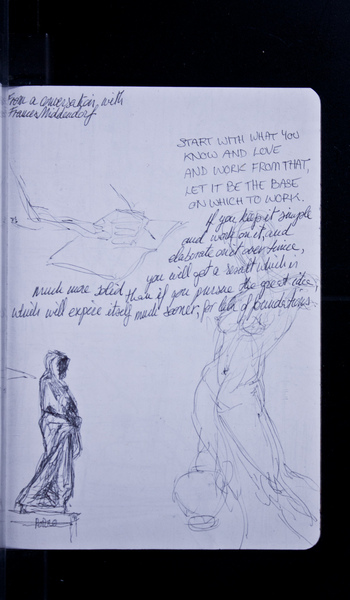 From a conversation, with
Frances Middendorf
START WITH WHAT YOU
KNOW AND LOVE
AND WORK FROM THAT,
LET IT BE THE BASE
ON WHICH TO WORK.
If you keep it simple
and work on it, and
elaborate on it over time,
you will get a result which is
much more solid than if you pursue the great idea,
which will expire itself much sooner, for lack of foundations.